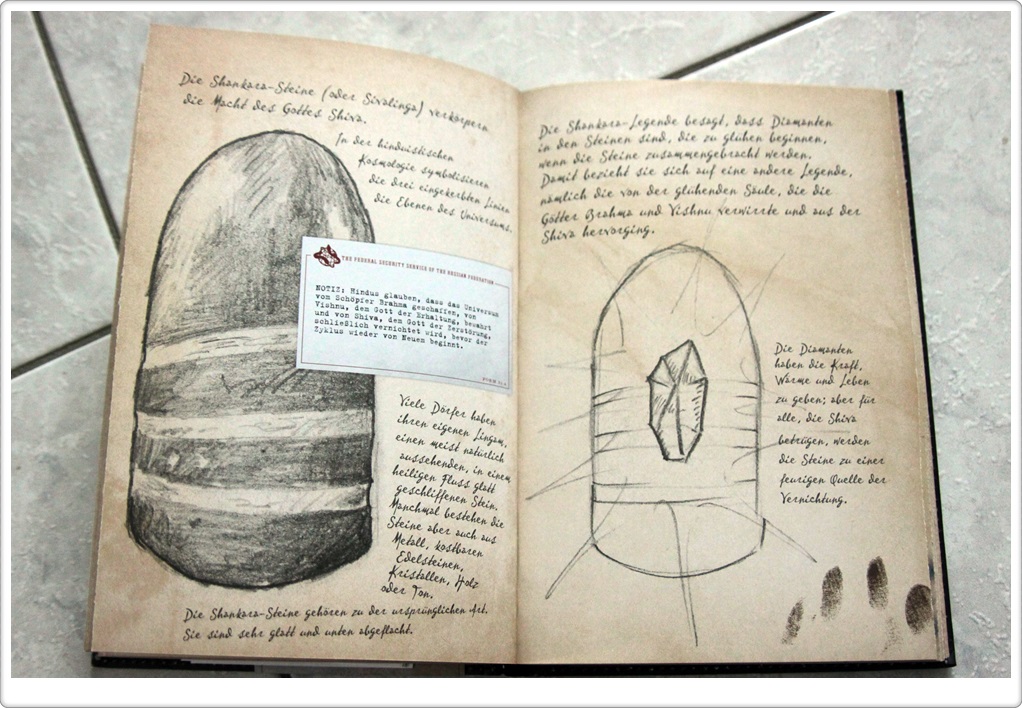 Die Shankara-Steine (oder Sivalinga) verkörpern
die Macht des Gottes Shiva.
In der hinduistischen
Kosmologie symbolisieren
die drei eingekerbten Linien
die Ebenen des Universums.
THE FEDERAL SECURITY SERVICE OF THE RUSSIAN FEDERATION
NOTIZ: Hindus glauben, dass das Universum
vom Schöpfer Brahma geschaffen, von
Vishnu, dem Gott der Erhaltung, bewahrt
und von Shiva, dem Gott der Zerstörung,
schließlich vernichtet wird, bevor der
Zyklus wieder von Neuem beginnt.
Viele Dörfer haben
ihren eigenen Lingam,
einen meist natürlich
aussehenden, in einem
heiligen Fluss glatt
geschliffenen Stein.
Manchmal bestehen die
Steine aber auch aus
Metall, kostbaren
Edelsteinen,
Kristallen, Holz
oder Ton.
Die Shankara-Steine gehören zu der ursprünglichen Art.
Sie sind sehr glatt und unten abgeflacht.
Die Shankara-Legende besagt, dass Diamanten
in den Steinen sind, die zu glühen beginnen,
wenn die Steine zusammengebracht werden.
Damit bezieht sie sich auf eine andere Legende,
nämlich die von der glühenden Säule, die die
Götter Brahma und Vishnu verwirrte und aus der
Shiva hervorging.
Die Diamanten
haben die Kraft,
Wärme und Leben
zu geben; aber für
alle, die Shiva
betrügen, werden
die Steine zu einer
feurigen Quelle der
Vernichtung.